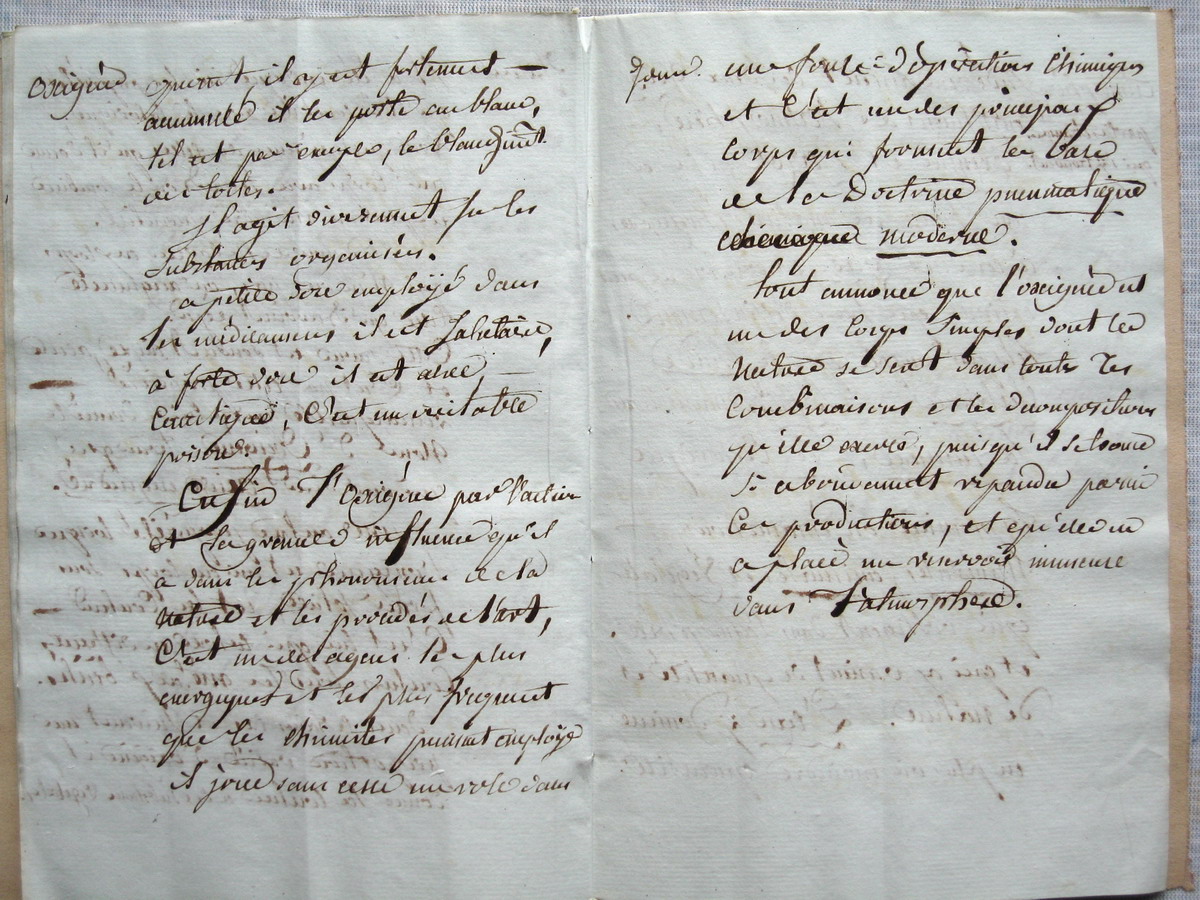 oxigène
quand il y est fortement —
accumulé il les porte au blanc,
tel est par exemple, le blanchimt.
des toiles.
Il agit diversement sur les
substances organisées.
a petite dose employé dans
les médicamens il est salutaire,
à forte dose il est acre, —
caustique, c'est un véritable
poison.
Enfin l'oxigène par l'action
et la grande influence qu'il
a dans les phénomènes de la
nature et les procédés de l'art,
c'est un des agens le plus
énergiques et les plus fréquent
que les chimistes puissent employé
il joue sans cesse un role dans
une foule d'opérations chimiques
et c'est un des principaux
corps qui forment la base
de la Doctrine pneumatique
chimique moderne.
tout annonce que l'oxigène est
un des corps simples dont la
nature se sert dans toutes les
combinaisons et les décompositions
qu'elle exerce, puisqu'il se trouve
si abondament répandu parmi
ces productions, et qu'elle en
a placé un réservoir immense
dans l'atmosphère.